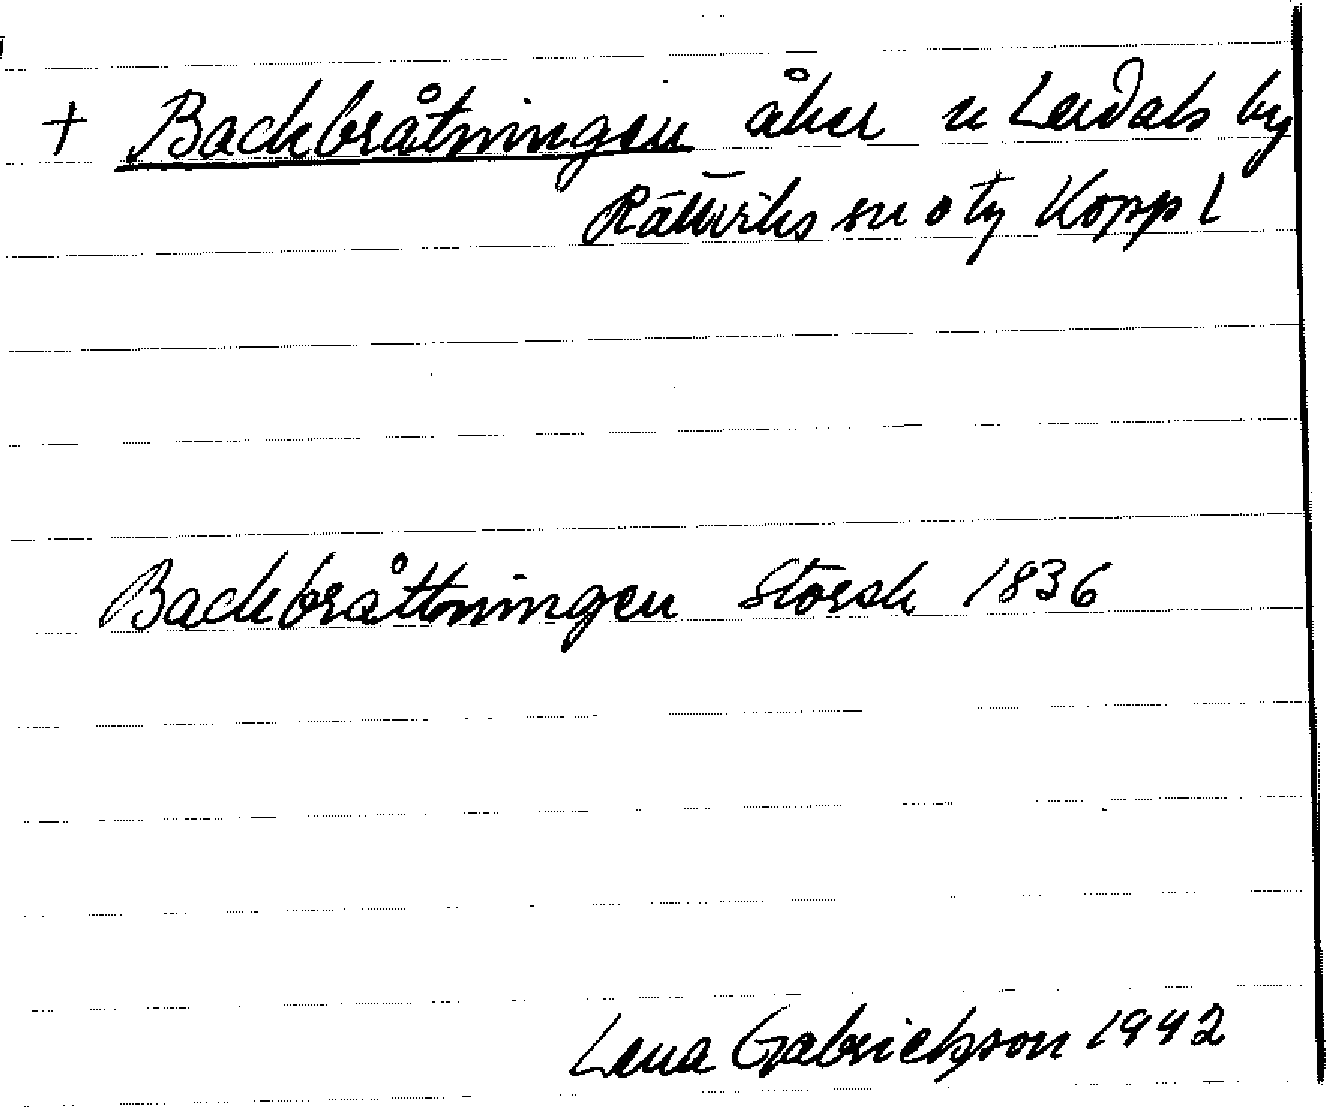 + Backbråtningen åker u Lerdals by
Rättviks sn o tg Kopp l
Backbråttningen Storsk 1836
Lena Gabrielsson 1942